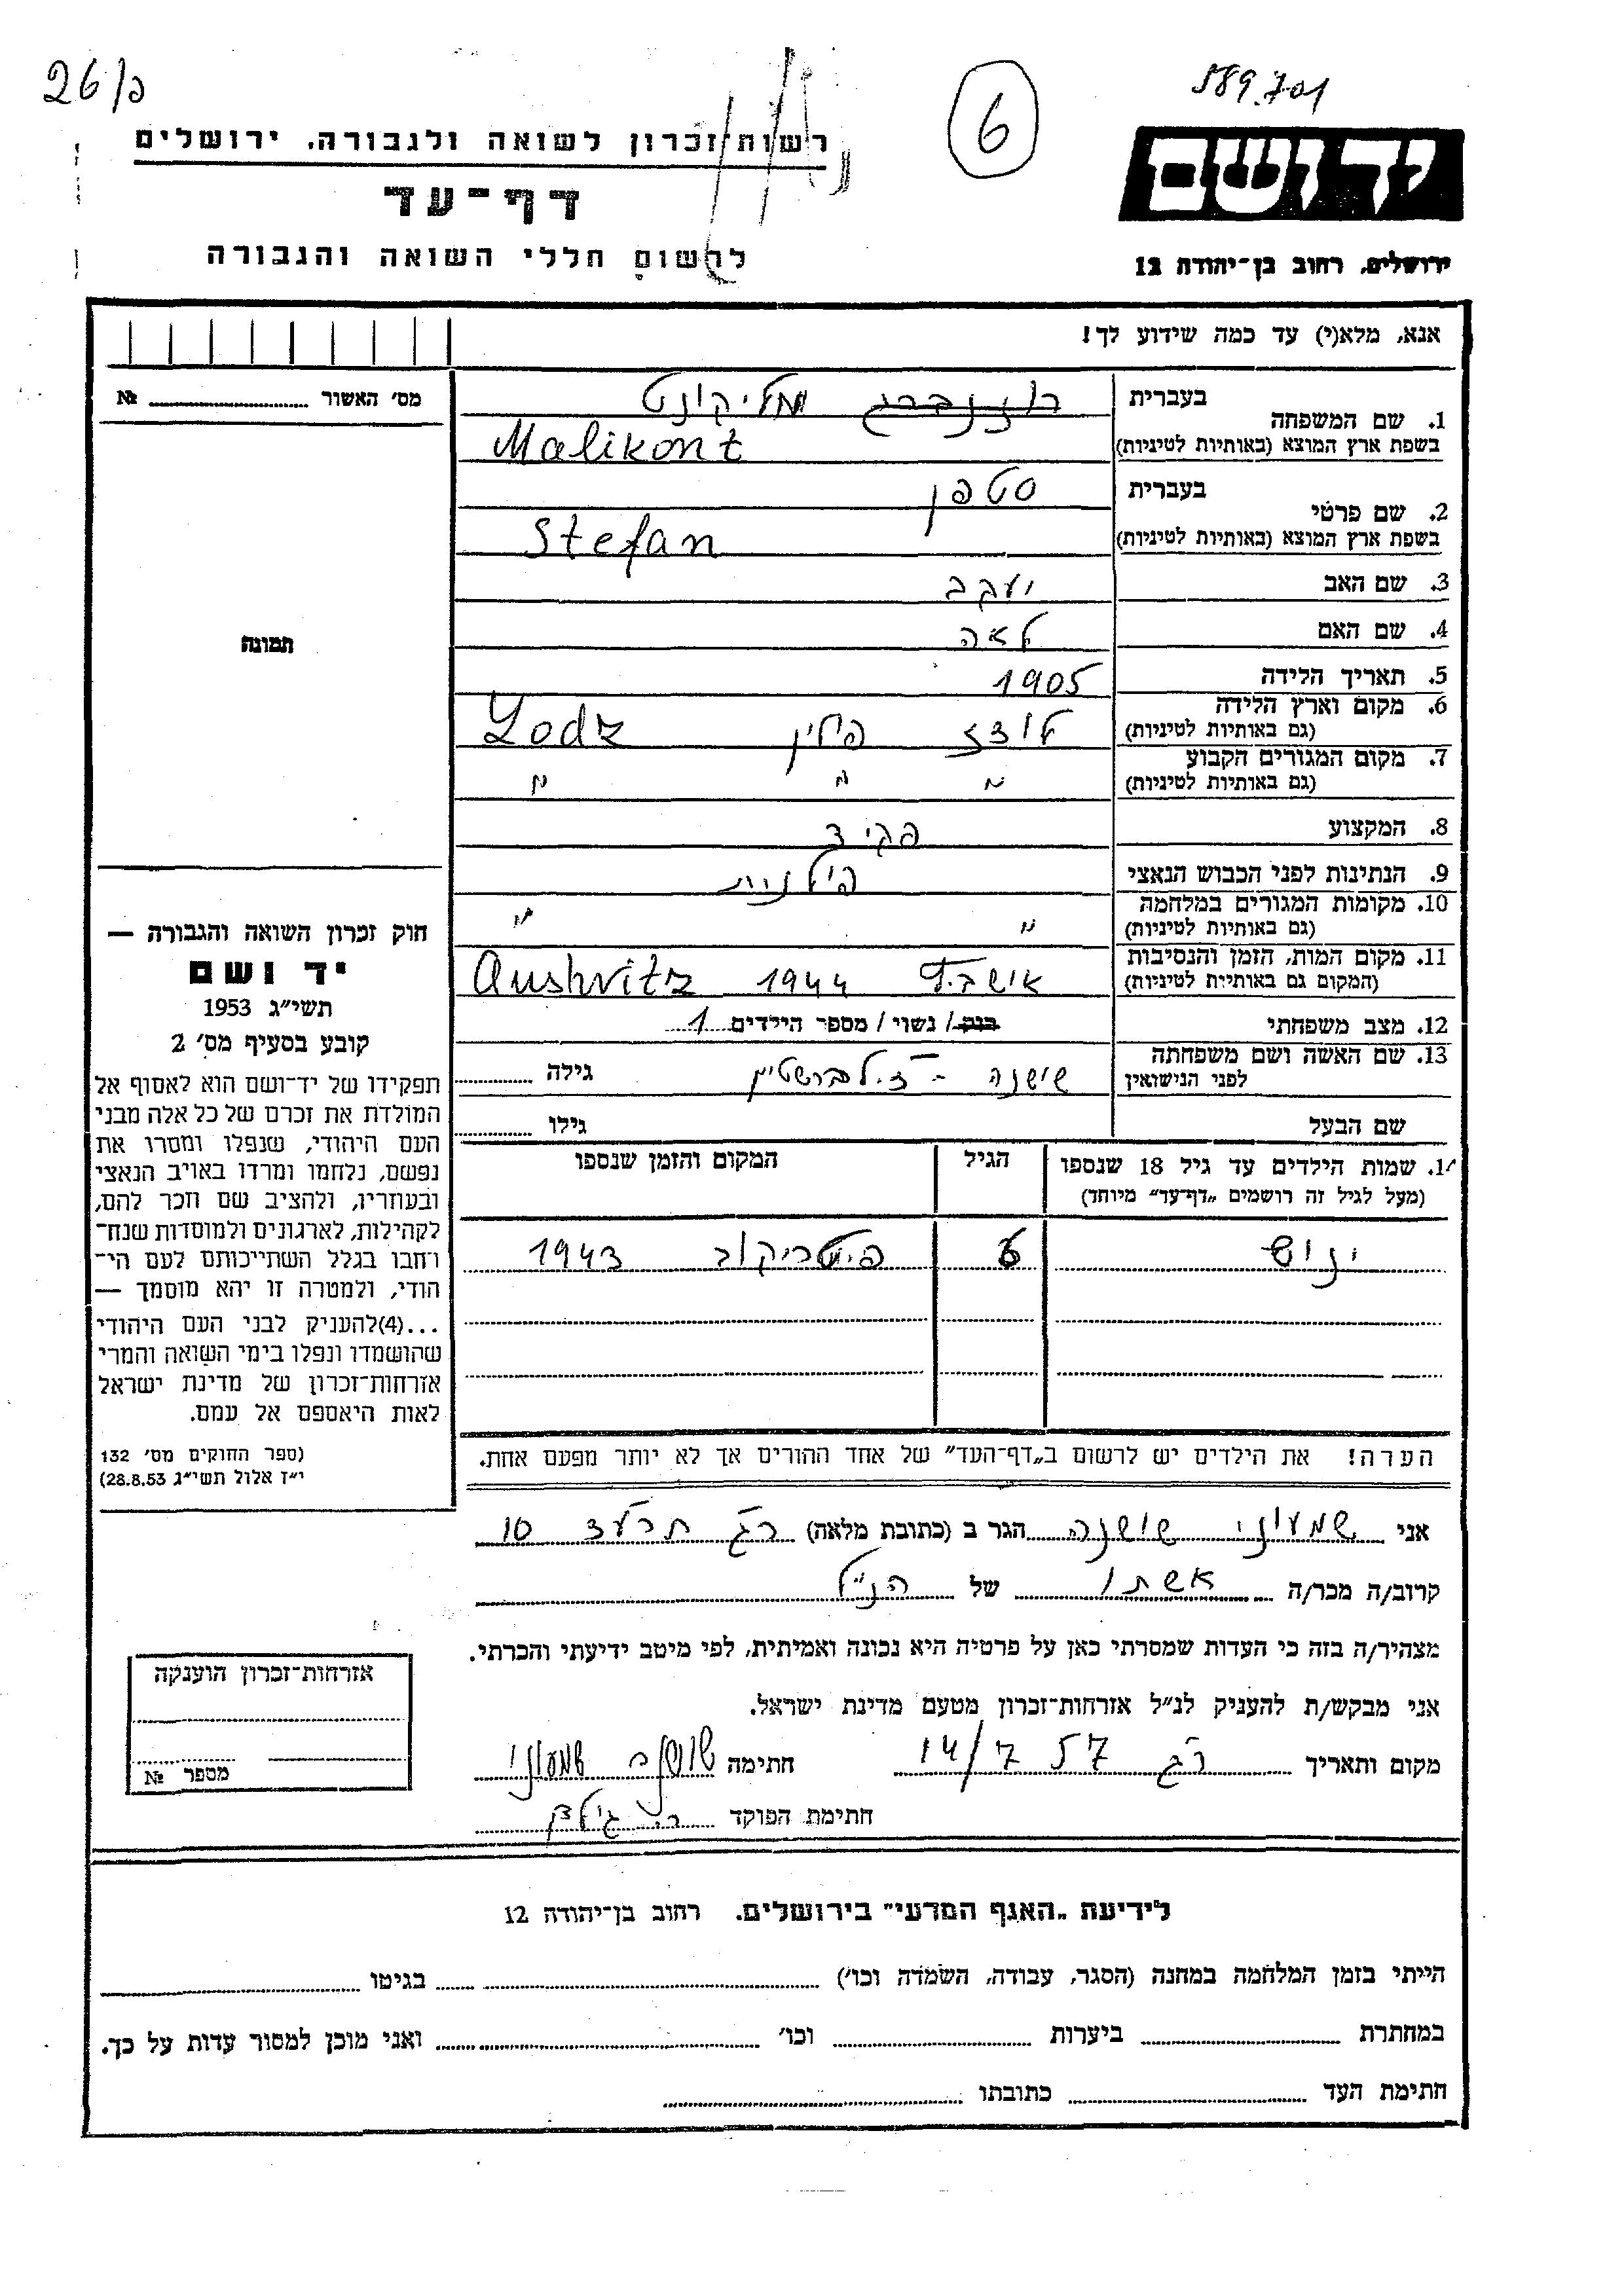 26/פ
6
589.701
רשות־זכרון לשואה ולגבורה. ירושלים
דף־עד
לרשום חללי השואה והגבורה
יד ושם
ירושלים, רחוב בן־יהודה 12
אנא, מלא(י) עד כמה שידוע לך!
מס׳ האשור № 
1. שם המשפחה בעברית רוזנברג מליקונט
בשפת ארץ המוצא (באותיות לטיניות) Malikont
2. שם פרטי בעברית סטפן
בשפת ארץ המוצא (באותיות לטיניות) Stefan
3. שם האב יעקב
4. שם האם לאה
תמונה
5. תאריך הלידה 1905
6. מקום וארץ הלידה (גם באותיות לטיניות) לודז פולין Lodz
7. מקום המגורים הקבוע (גם באותיות לטיניות) " " "
8. המקצוע פקיד
9. הנתינות לפני הכבוש הנאצי פולנית
10. מקומות המגורים במלחמה (גם באותיות לטיניות) " "
11. מקום המות, הזמן והנסיבות (המקום גם באותיות לטיניות) אושביץ 1944 Aushvitz
12. מצב משפחתי רווק / נשוי / מספר הילדים 1
13. שם האשה ושם משפחתה לפני הנישואין שושנה - זילברשטיין גילה
שם הבעל גילו
14. שמות הילדים עד גיל 18 שנספו (מעל לגיל זה רושמים „דף־עד״ מיוחד) הגיל המקום והזמן שנספו
ינוש 6 פיוטריקוב 1943
הערה! את הילדים יש לרשום ב„דף־העד״ של אחד ההורים אך לא יותר מפעם אחת.
חוק זכרון השואה והגבורה —
יד ושם
תשי״ג 1953
קובע בסעיף מס׳ 2
תפקידו של יד־ושם הוא לאסוף אל
המולדת את זכרם של כל אלה מבני
העם היהודי, שנפלו ומסרו את
נפשם, נלחמו ומרדו באויב הנאצי
ובעוזריו, ולהציב שם וזכר להם,
לקהילות, לארגונים ולמוסדות שנח־
רחבו בגלל השתייכותם לעם הי־
הודי, ולמטרה זו יהא מוסמך —
...(4)להעניק לבני העם היהודי
שהושמדו ונפלו בימי השואה והמרי
אזרחות־זכרון של מדינת ישראל
לאות היאספם אל עמם.
(ספר החוקים מס׳ 132
י״ז אלול תשי״ג 28.8.53)
אני שמעוני שושנה הגר ב (כתובת מלאה) ר״ג תרע״ד 10
קרוב/ה מכר/ה אשתו של הנ״ל
מצהיר/ה בזה כי העדות שמסרתי כאן על פרטיה היא נכונה ואמיתית, לפי מיטב ידיעתי והכרתי.
אני מבקש/ת להעניק לנ״ל אזרחות־זכרון מטעם מדינת ישראל.
מקום ותאריך ר״ג 14/7 57 חתימה שושנה שמעוני
חתימת הפוקד
אזרחות־זכרון הוענקה
מספר №
לידיעת „האגף המדעי״ בירושלים. רחוב בן־יהודה 12
הייתי בזמן המלחמה במחנה (הסגר, עבודה, השמדה וכו׳) בגיטו
במחתרת ביערות וכו׳ ואני מוכן למסור עדות על כך.
חתימת העד כתובתו